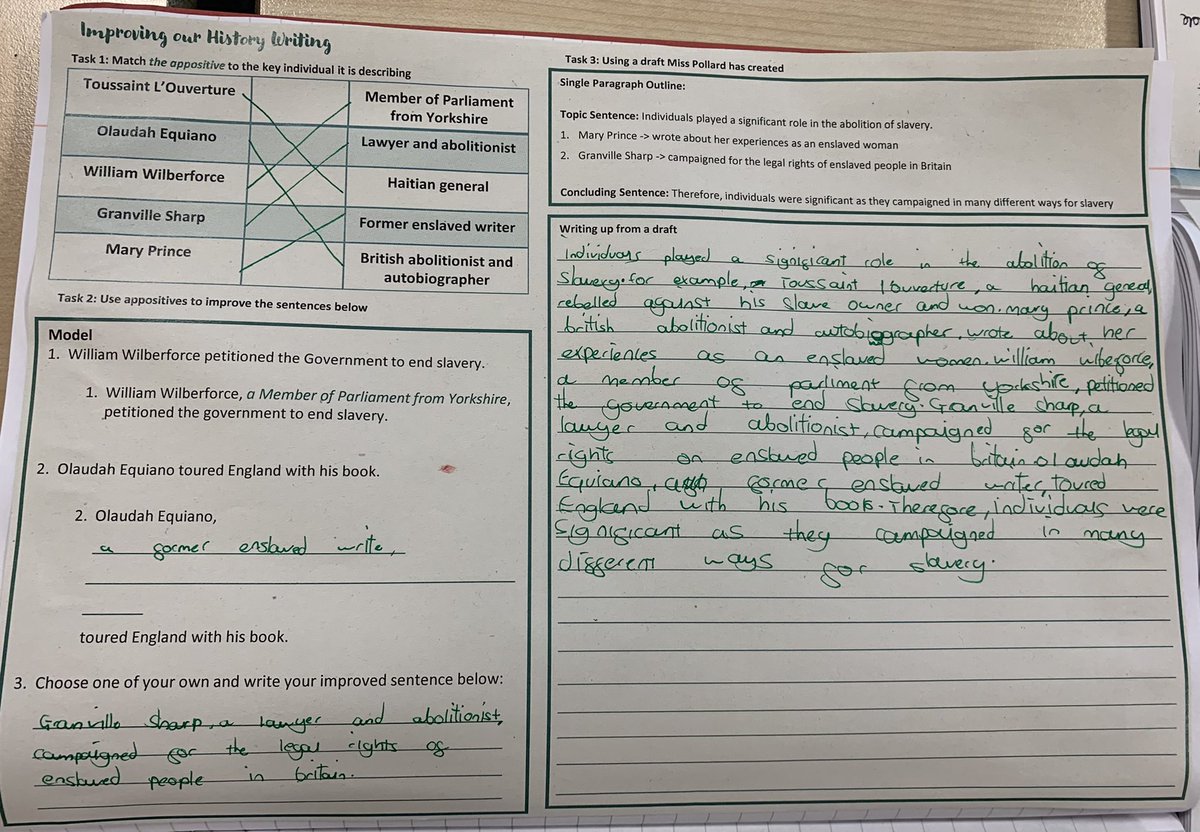 Improving our History Writing
Task 1: Match the appositive to the key individual it is describing
Toussaint L'Ouverture
Olaudah Equiano
William Wilberforce
Granville Sharp
Mary Prince
Member of Parliament
from Yorkshire
Lawyer and abolitionist
Haitian general
Former enslaved writer
British abolitionist and
autobiographer
Task 2: Use appositives to improve the sentences below
Model
1. William Wilberforce petitioned the Government to end slavery.
1. William Wilberforce, a Member of Parliament from Yorkshire,
petitioned the government to end slavery.
2. Olaudah Equiano toured England with his book.
2. Olaudah Equiano,
a former enslaved write,
toured England with his book.
3. Choose one of your own and write your improved sentence below:
Granville Sharp, a lawyer and abolitionist,
campaigned for the legal rights of
enslaved people in britain.
Task 3: Using a draft Miss Pollard has created
Single Paragraph Outline:
Topic Sentence: Individuals played a significant role in the abolition of slavery.
1. Mary Prince -> wrote about her experiences as an enslaved woman
2. Granville Sharp -> campaigned for the legal rights of enslaved people in Britain
Concluding Sentence: Therefore, individuals were significant as they campaigned in many different ways for slavery
Writing up from a draft
Individuals played a significant role in the abolition of
slavery. for example, Toussaint louverture, a haitian general,
rebelled against his slave owner and won. mary prince, a
british abolitionist and autobiographer, wrote about her
experiences as an enslaved women. william wilbeforce,
a member of parliment from yorkshire, petitioned
the government to end slavery. Granville sharp, a
lawyer and abolitionist, campaigned for the legal
rights on enslaved people in britain. olaudah
Equiano, former enslaved writer, toured
England with his book. Therefore, individuals were
significant as they campaigned in many
different ways for slavery.